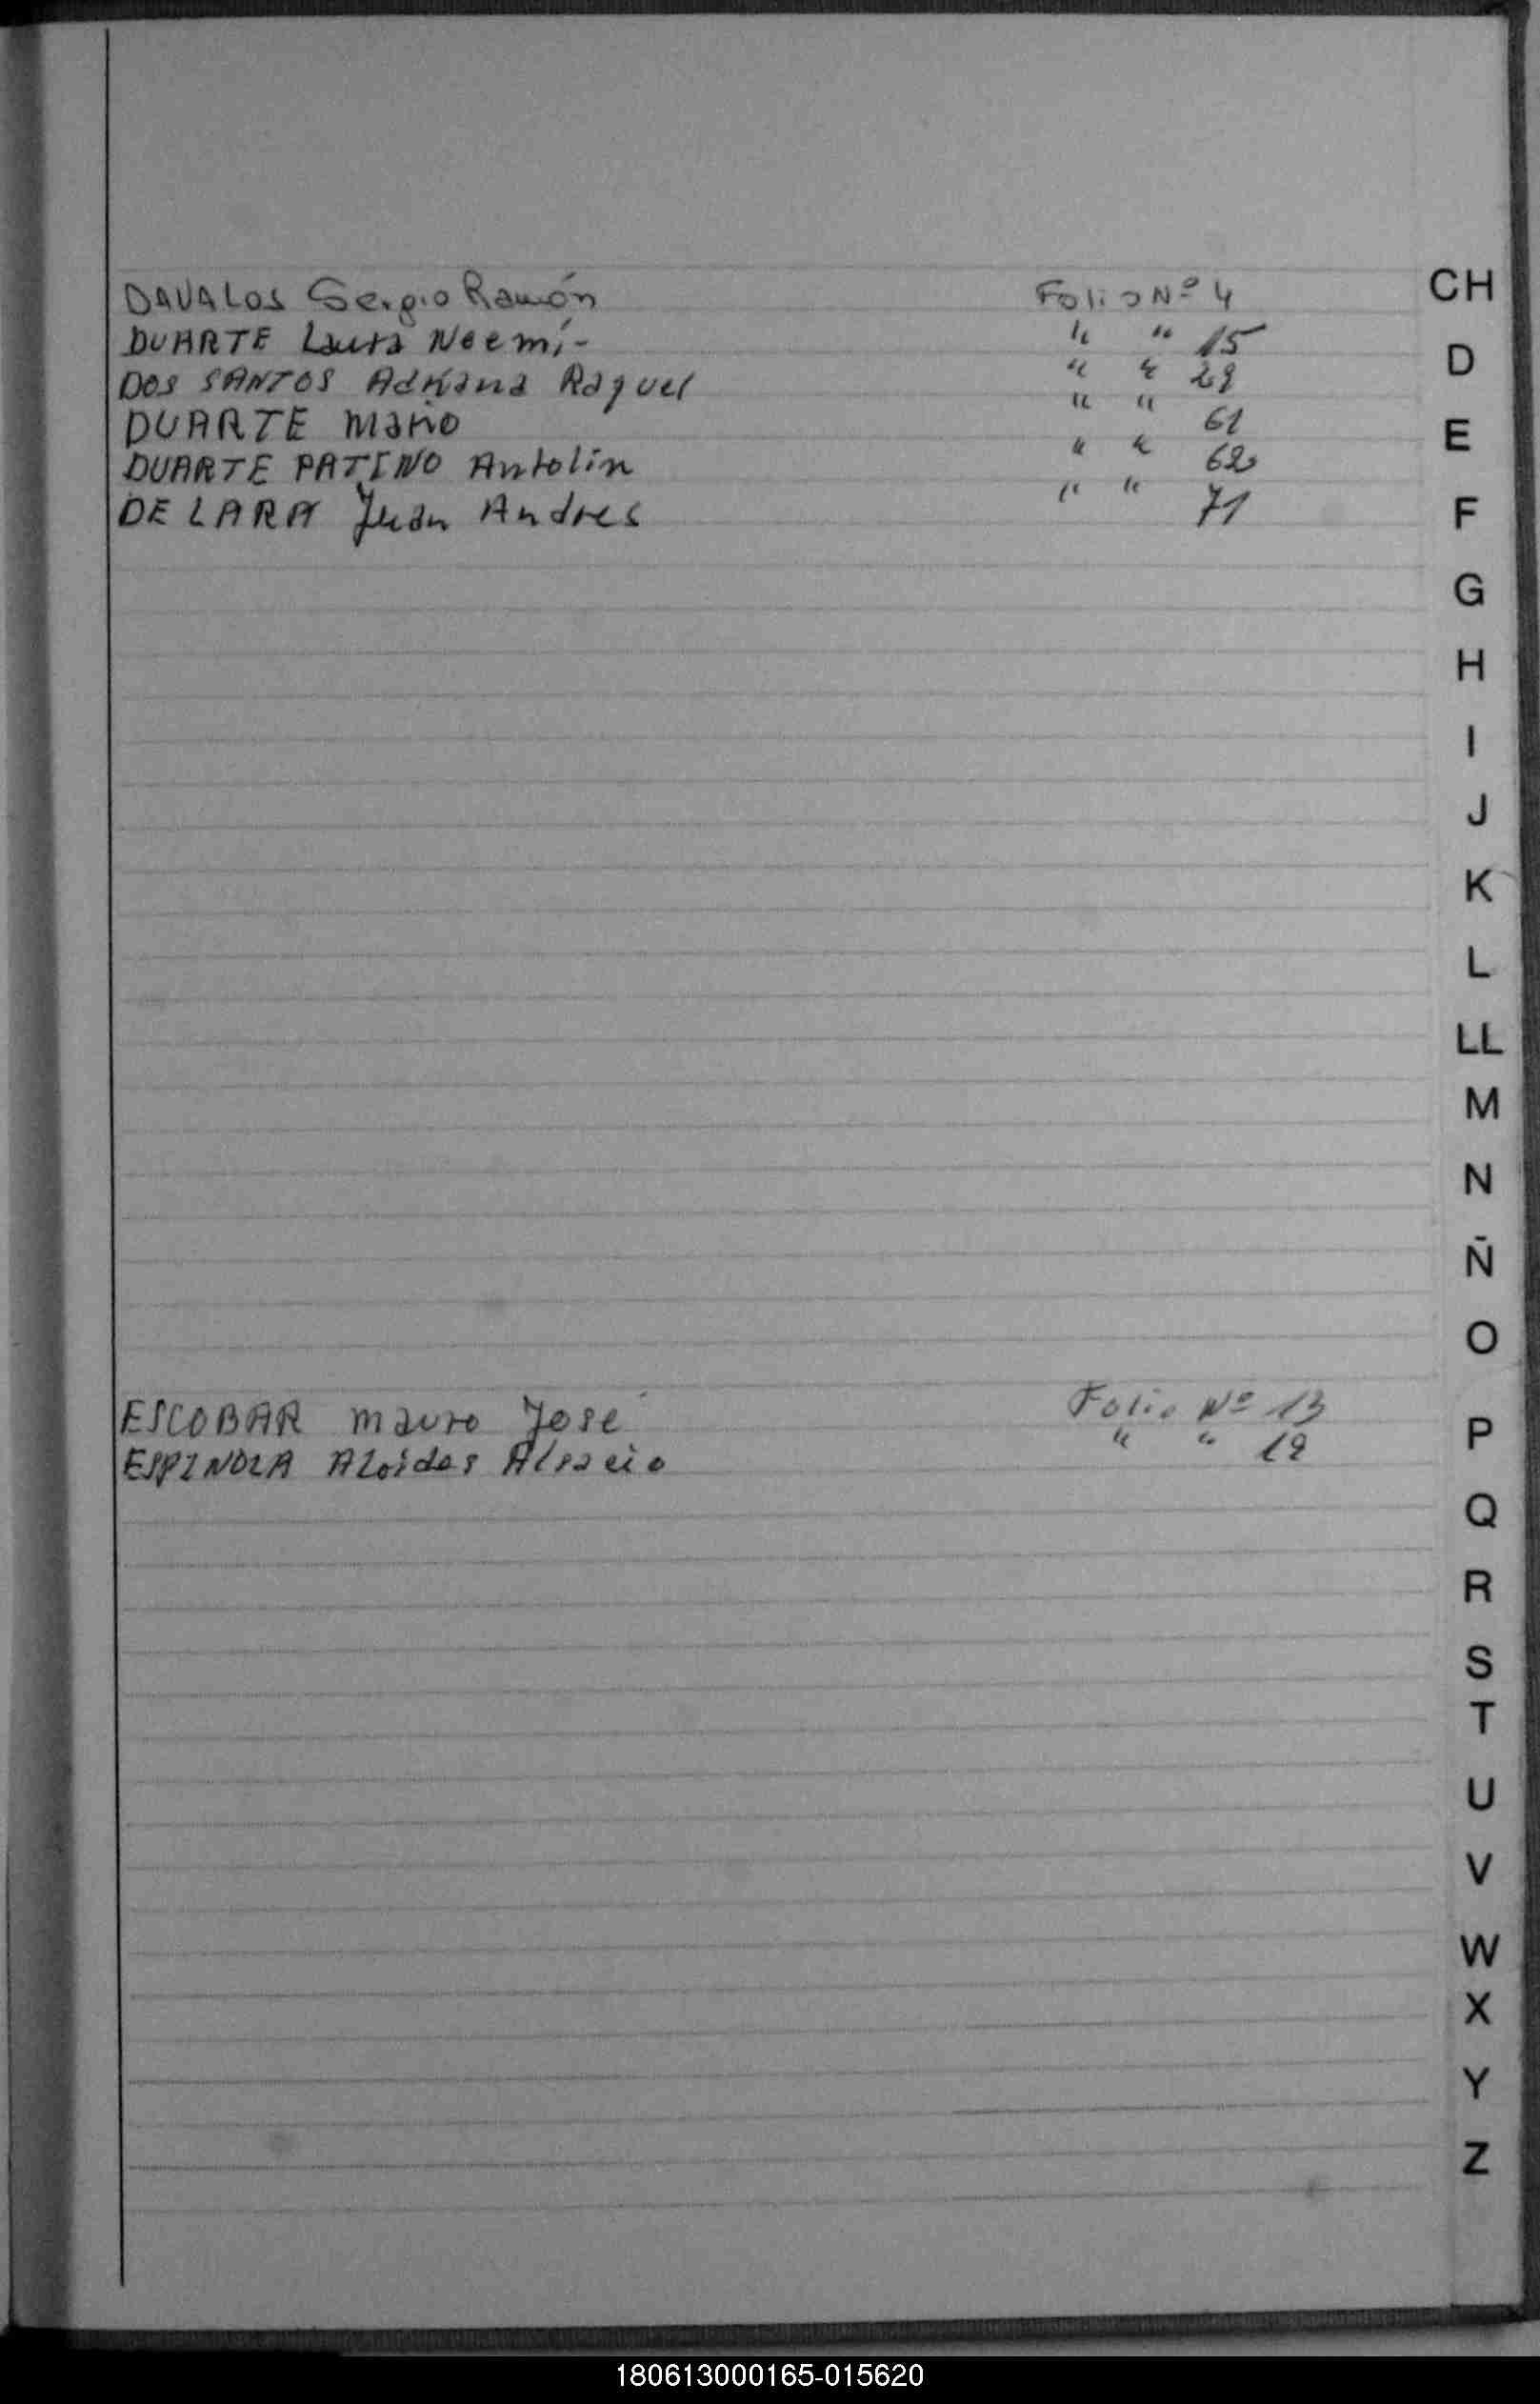 DAVALOS Sergio Ramón Folio Nº 4
DUARTE Laura Noemí- " " 15
DOS SANTOS Adriana Raquel " " 29
DUARTE Mario " " 61
DUARTE PATINO Antolin " " 62
DE LARA Juan Andres " " 71
ESCOBAR Mauro José Folio Nº 13
ESPINOLA Alcides " " 19
CH
D
E
F
G
H
I
J
K
L
LL
M
N
Ñ
O
P
Q
R
S
T
U
V
W
X
Y
Z
180613000165-015620